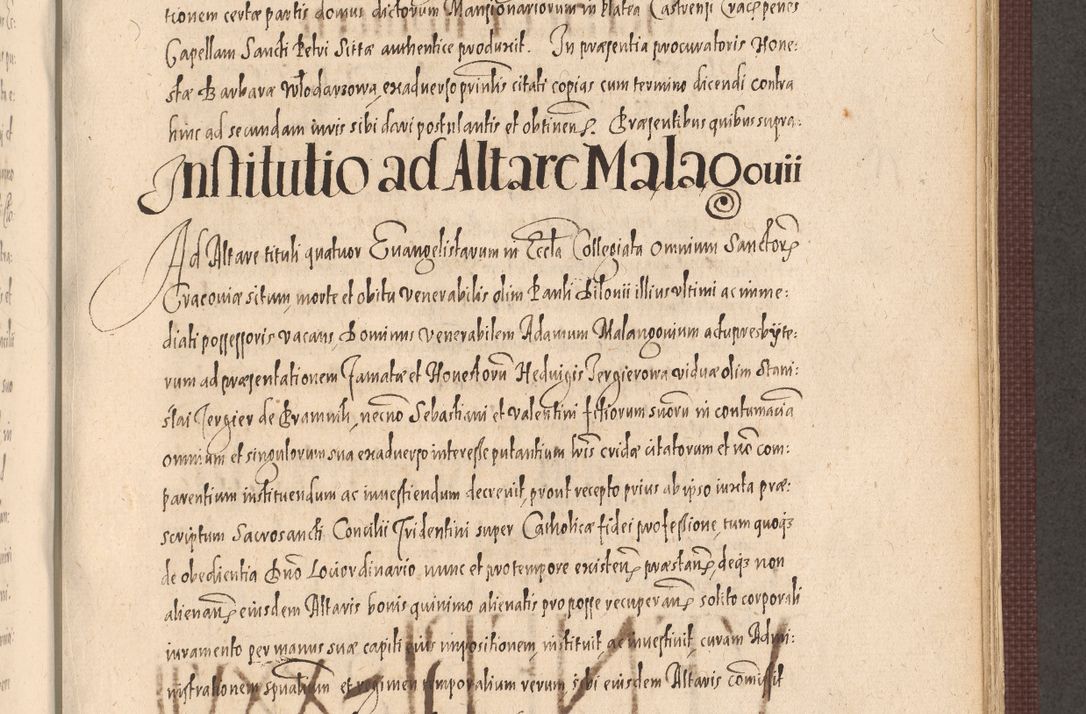 tionem certæ partis domus dictorum Mansionariorum in platea Castrensi Crac: penes
Capellam Sancti Petri Sittæ authentice produxit. In præsentia procuratoris Hone:
stæ Barbaræ Włodarzowa, exadverso prinlis citati copias cum termino dicendi contra
hinc ad secundam iuris sibi dari postulantis et obtinen. Præsentibus quibus supra.
Institutio ad Altare Malagouii
Ad Altare tituli quatuor Euangelistarum in Eccla Collegiata Omnium Sanctor
Cracoviæ situm, morte et obitu venerabilis olim Pauli Bilonii illius ultimi ac imme:
diati possessoris vacans, Dominus venerabilem Adamum Malangonium actu presbyte:
rum ad præsentationem Famatæ et Honestorū Hedvigis Jergierowa viduæ olim Stani:
slai Jergier de Pramnik, necnō Sebastiani et Valentini filiorum suorū in contumaciā
omnium et singulorum sua exadverso interesse putantium lris cridæ citatorum et nō com:
parentium instituendum ac investiendum decrevit, prout recepto prius ab ipso iuxta præ:
scriptum Sacrosancti Concilii Tridentini super Catholicæ fidei professione, tum quoq3
de obedientia Dno Loci ordinario nunc et pro tempore existen præstan, deq3 non
alienan eiusdem Altaris bonis quinimo alienatis pro posse recuperan solito corporali
iuramento per manus suæ capiti eius impositionem, instituit ac investivit, curam Admi:
nistrationem spualium et regimen temporalium rerum sibi eiusdem Altaris comisit